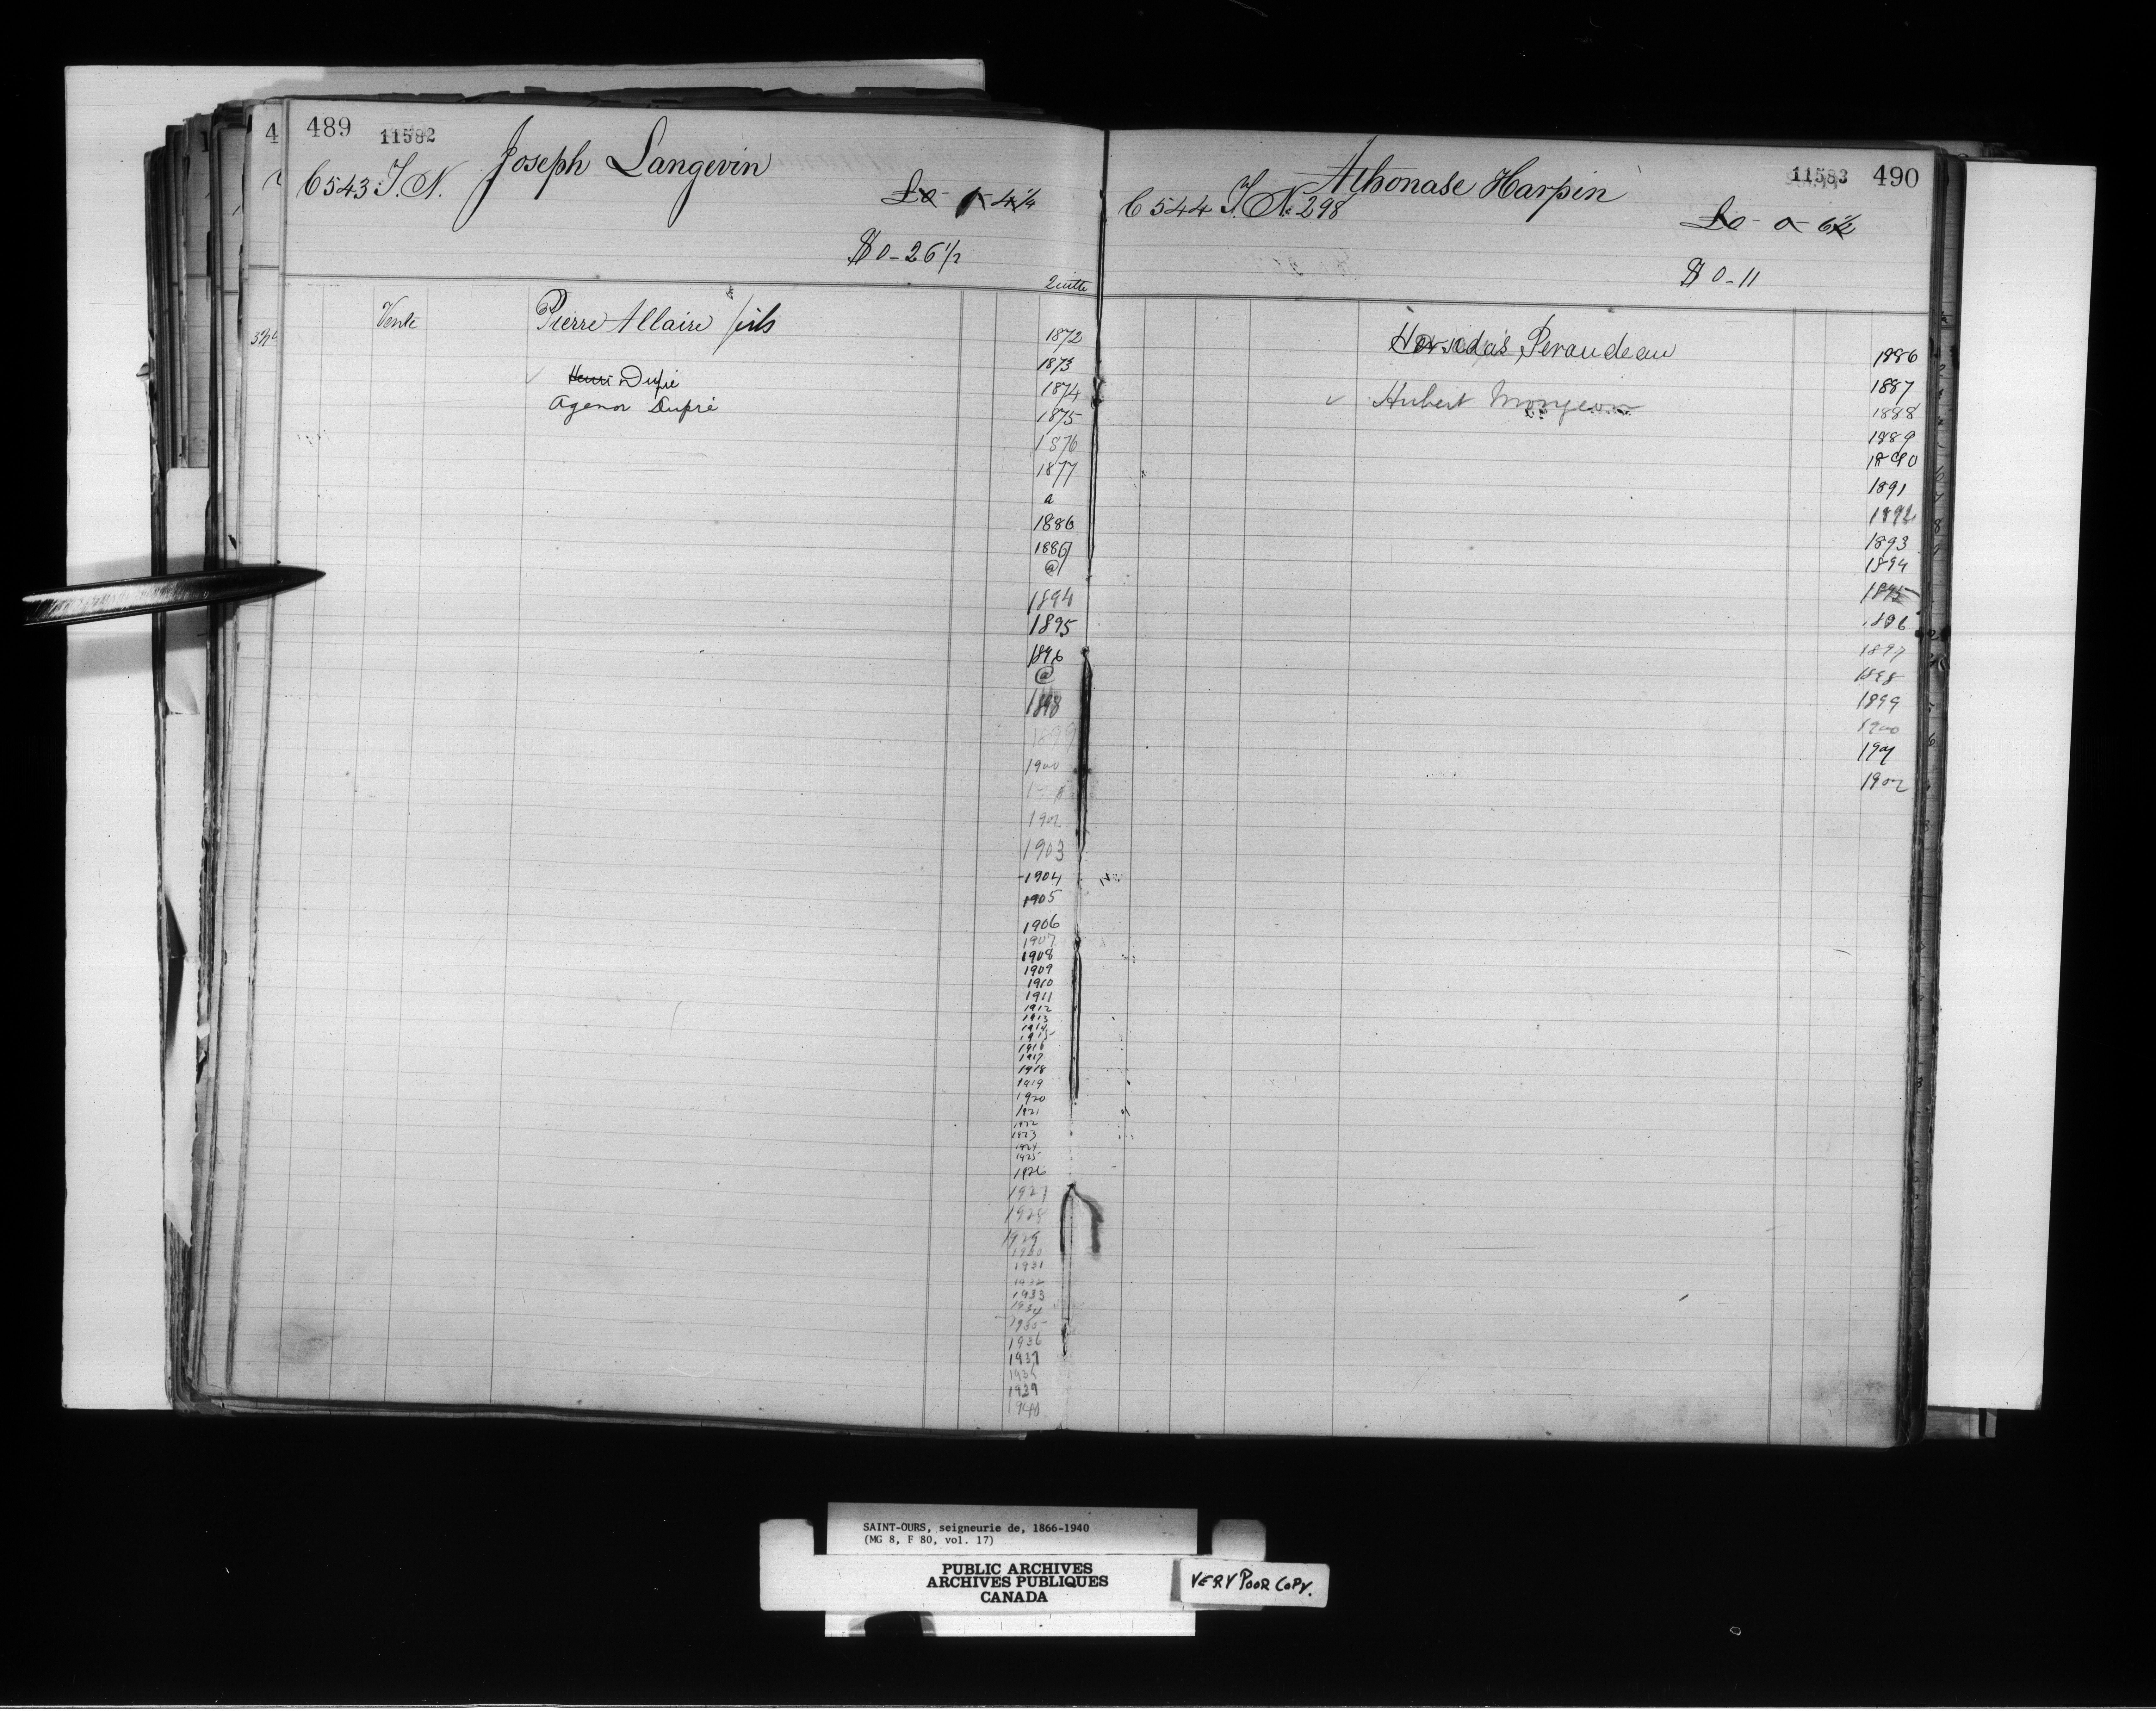 489 11582
Joseph Langevin
6543 T. N.
£0 - 4¼
$0-26 1/2
Quitte
Vente Pierre Allaire fils
Henri Dupré
Agenor Dupré
1872
1873
1874
1875
1876
1877
a
1886
1887
@
1894
1895
1896
@
1898
1899
1900
1902
1903
1904
1905
1906
1907
1908
1909
1910
1911
1912
1913
1914
1915
1916
1917
1918
1919
1920
1921
1922
1923
1924
1925
1926
1927
1928
1929
1930
1931
1932
1933
1934
1935
1936
1937
1938
1939
1940
11583 490
Athonase Harpin
6544 T. N. 298
£0 - 0 - 6½
$0-11
Peraudeau
✓ Hubert Mongeon
1886
1887
1888
1889
1890
1891
1892
1893
1894
1895
1896
1897
1898
1899
1900
1901
1902
SAINT-OURS, seigneurie de, 1866-1940
(MG 8, F 80, vol. 17)
PUBLIC ARCHIVES
ARCHIVES PUBLIQUES
CANADA
VERY POOR COPY.